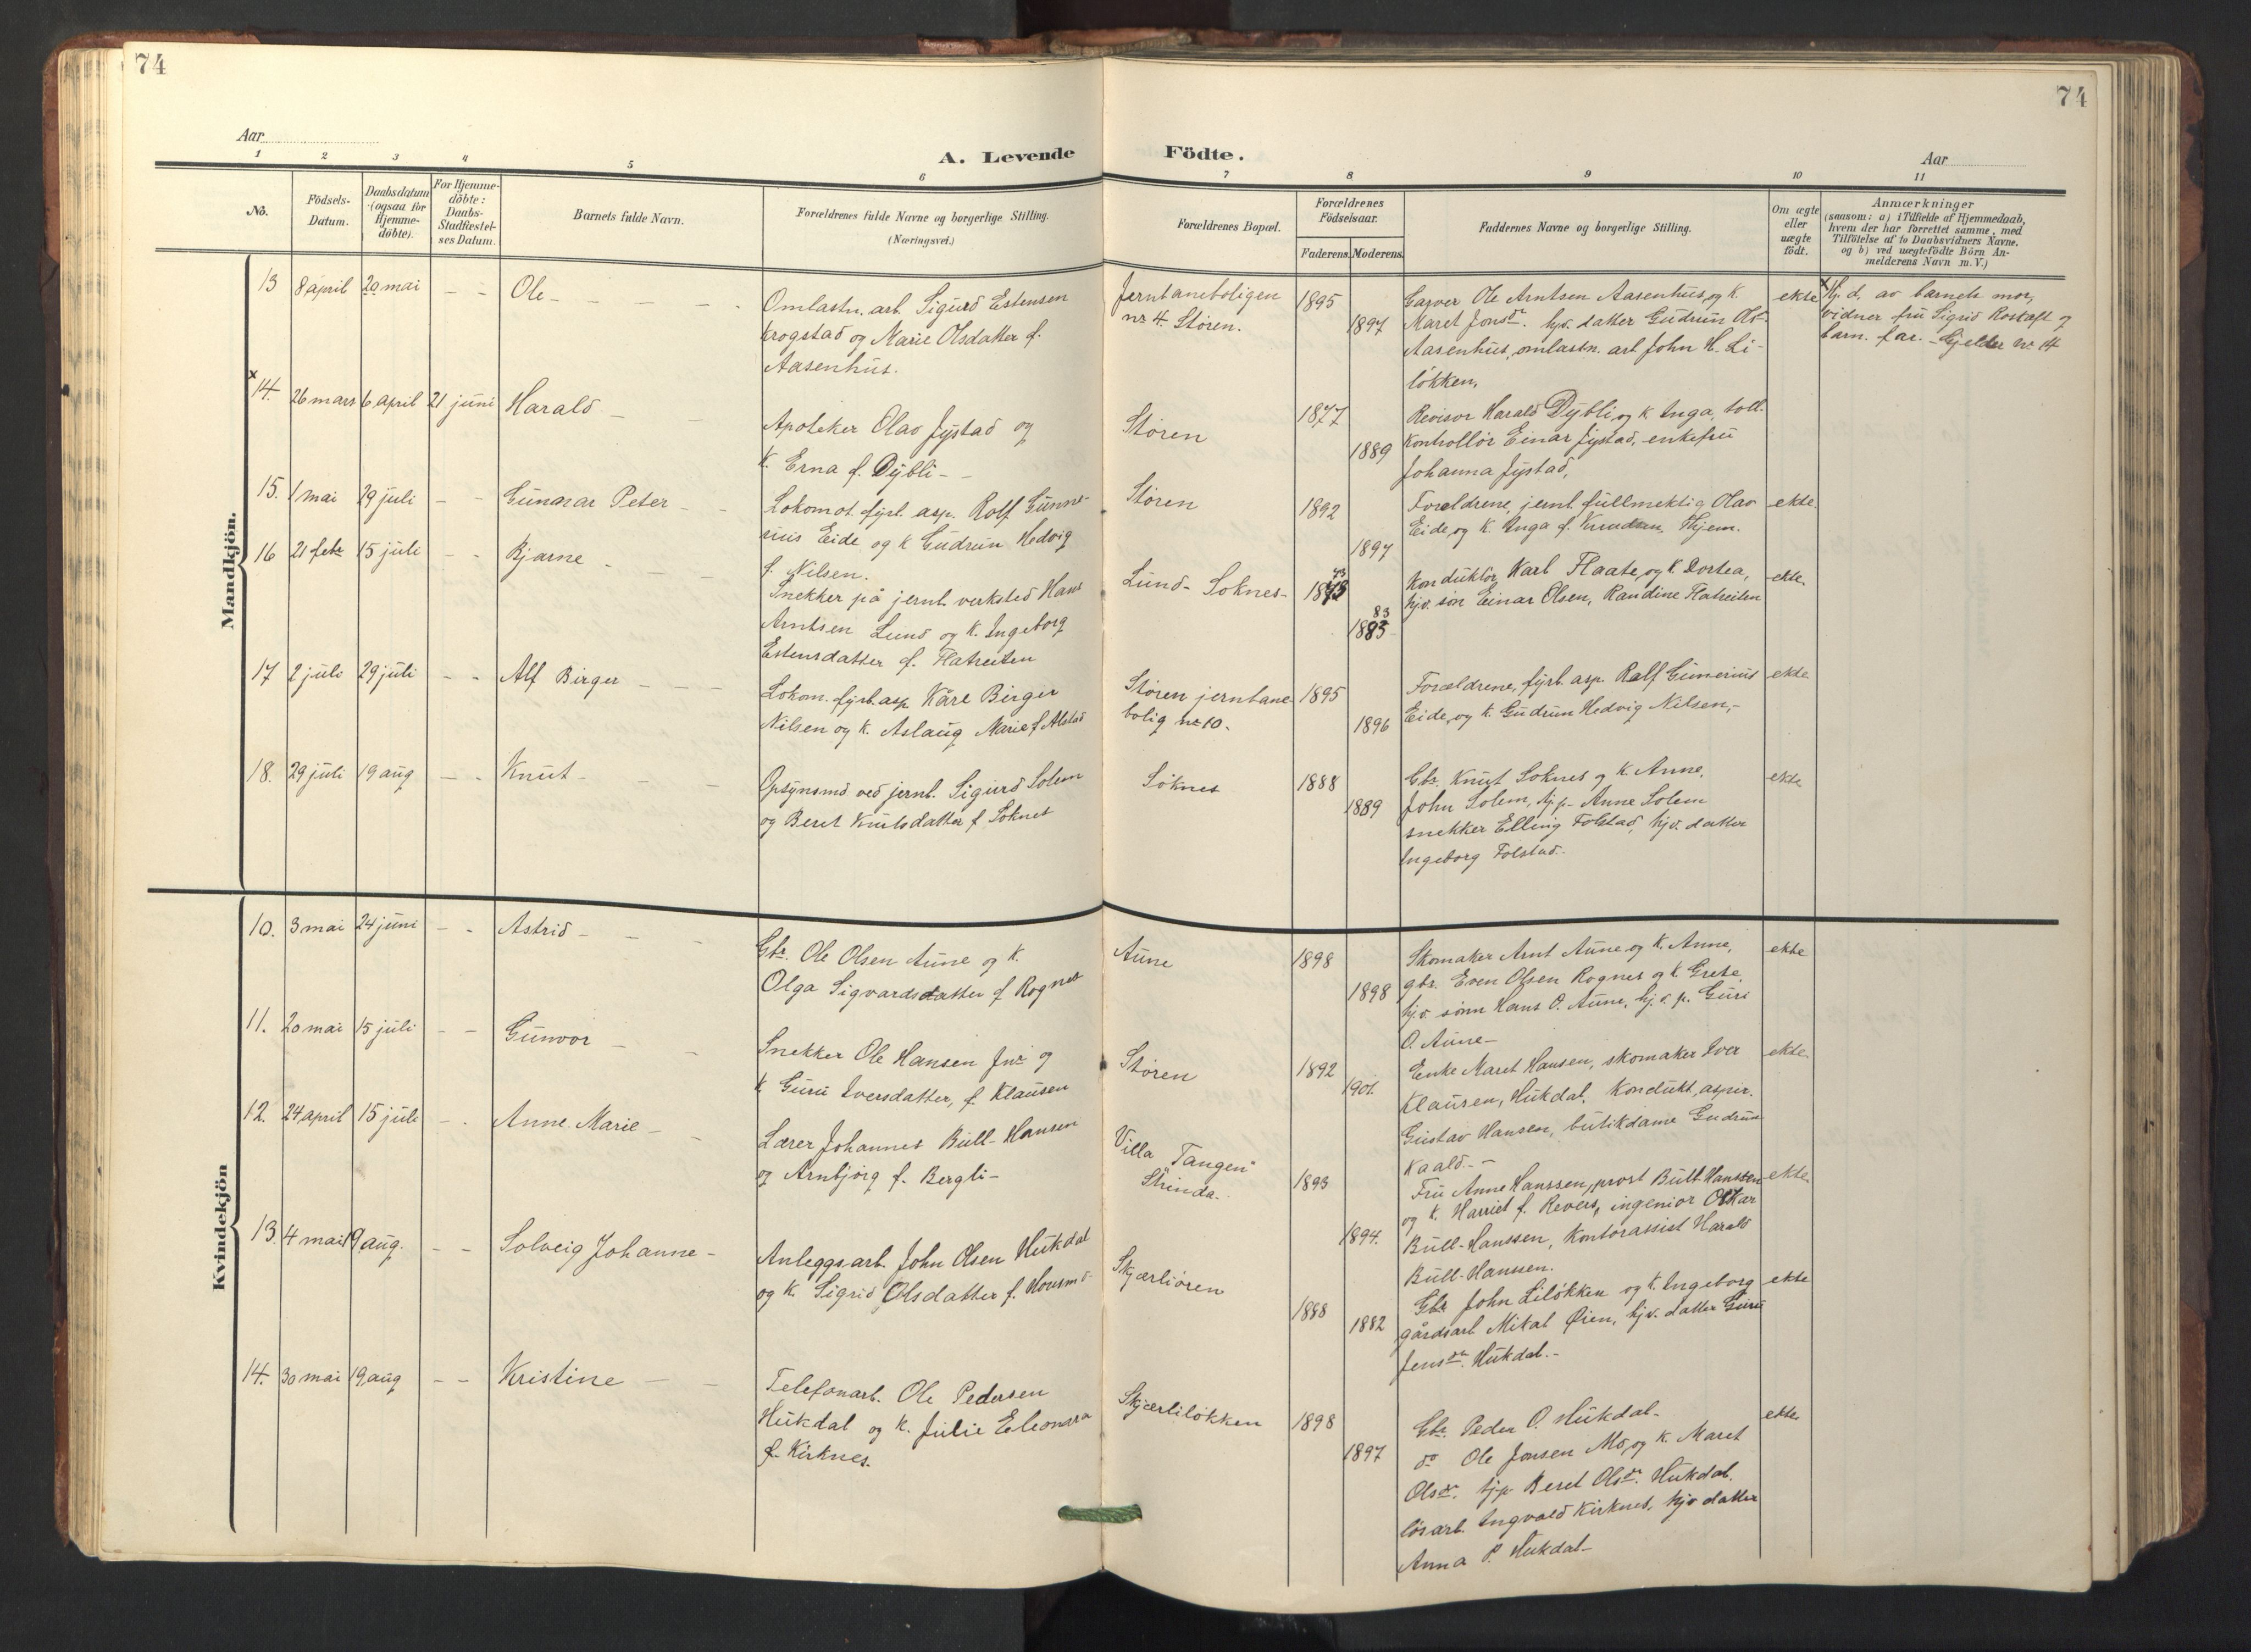 74
74
Aar
A. Levende Födte.
Aar
1 2 3 4 5 6 7 8 9 10 11
No.
Födsels-
Datum.
Daabsdatum
(ogsaa for
Hjemme-
döbte).
For Hjemme-
döbte:
Daabs-
Stadfæstel-
ses Datum.
Barnets fulde Navn.
Forældrenes fulde Navne og borgerlige Stilling.
(Næringsvei.)
Forældrenes Bopæl.
Forældrenes
Födselsaar.
Faderens. Moderens.
Faddernes Navne og borgerlige Stilling.
Om ægte
eller
uægte
födt.
Anmærkninger
(saasom: a) i Tilfælde af Hjemmedaab,
hvem der har forrettet samme, med
Tilföielse af to Daabsvidners Navne.
og b) ved uægtefödte Börn An-
melderens Navn m. V.)
Mandkjön.
13 8 april 20 mai - - Ole - - -
Omlastn. arb. Sigurd Estensen
Krogstad og Marie Olsdatter f.
Aasenhus.
Jernbaneboligen
nr 4. Støren.
1895
1897
Garver Ole Arntsen Aasenhus, og k.
Maret Jonsdr. hjv. datter Gudrun Olsdr.
Aasenhus, omlastn. arb John H. Li-
løkken.
ekte
x Hj. d. av barnets mor,
vidner fru Sigrid og
barn. far. - Gjelder nr 14
x
14. 26 mars 6 april 21 juni Harald - -
Apoteker Olav Jystad og
k. Erna f. Dybli - -
Støren
1877
1889
Revisor Harald Dybli og k. Inga, toll-
kontrollør Einar Jystad, enkefru
Johanna Jystad,
15. 1 mai 29 juli - - Gunnar Peter - -
Lokomot. fyrb. asp. Rolf Gunne-
rius Eide og k Gudrun Hedvig
f. Nilsen.
Støren
1892
1897
Forældrene, jernb. fullmektig Olav
Eide, og k. Inga f. Knudsen, Thjem.
ekte
16 21 febr 15 juli - - Bjarne - - -
Snekker på jernb. verksted Hans
Arntsen Lund og k. Ingeborg
Estensdatter f. Flatreiten
Lund - Soknes -
73
1873
83
1883
Konduktør Karl Flaate, og k. Dortea,
hjv. søn Einar Olsen, Randine Flatreiten
ekte.
17 2 juli 29 juli - - Alf Birger - - -
Lokom. fyrb. asp. Kåre Birger
Nilsen og k. Aslaug Marie f Alstad
Støren jernbane-
bolig nr 10.
1895
1896
Forældrene, fyrb. asp. Rolf Gunnerius
Eide, og k. Gudrun Hedvig Nilsen, -
ekte
18. 29 juli 19 aug - - Knut - - -
Opsynsmd. ved jernb. Sigurd Solem
og Beret Knutsdatter f. Soknes
Soknes
1888
1889
Gbr. Knut Soknes og k. Anne,
John Solem, hj.p. Anne Solem
snekker Elling Folstad, hjv. datter
Ingeborg Folstad.
ekte
Kvindekjön
10. 3 mai 24 juni - - Astrid - - -
Gbr. Ole Olsen Aune og k.
Olga Sigvardsdatter f Rognes
Aune
1898
1898
Skomaker Arnt Aune og k. Anne,
gbr. Even Olsen Rognes og k. Grete,
hjv. sønn Hans O. Aune, hj.v. p. Guri
O. Aune -
ekte
11. 20 mai 15 juli - - Gunvor - -
Snekker Ole Hansen Jnr og
k. Guru Iversdatter, f Klausen
Støren
1892
1901.
Enke Maret Hansen, skomaker Iver
Klausen, Hukdal. Kondukt. aspir.
Gustav Hansen, butikdame Gudrun
Kaald. - -
ekte.
12. 24 april 15 juli - . Anne Marie - -
Lærer Johannes Bull-Hansen
og Arnbjørg f. Bergli -
Villa Tangen
Strinda.
1893
1894.
Fru Anne Hanssen, prost Bull Hanssen
og k. Harriet f. Revers, ingeniør Oskar
Bull-Hanssen, Kontorassist Harald
Bull-Hanssen.
ekte.
13. 4 mai 19 aug. - - Solveig Johanne -
Anleggsarb. John Olsen Hukdal
og k. Sigrid Olsdatter f.
Skjærliøren
1888
1882
Gbr John Liløkken og k. Ingeborg
gårdsarb Mikal Øien, hjv. datter Guru
Jensdr. Hukdal. -
ekte
14. 30 mai 19 aug - - Kristine - -
Telefonarb. Ole Pedersen
Hukdal og k. Julie Eleonora
f. Kirknes.
Skjærliløkken
1898
1897
Gbr. Peder O. Hukdal -
do Ole Jonsen Mo, og k. Maret
Olsdr. hjp Beret Olsdr. Hukdal.
løsarb. Ingvald Kirknes, hjv datter
Anna P. Hukdal -
ekte